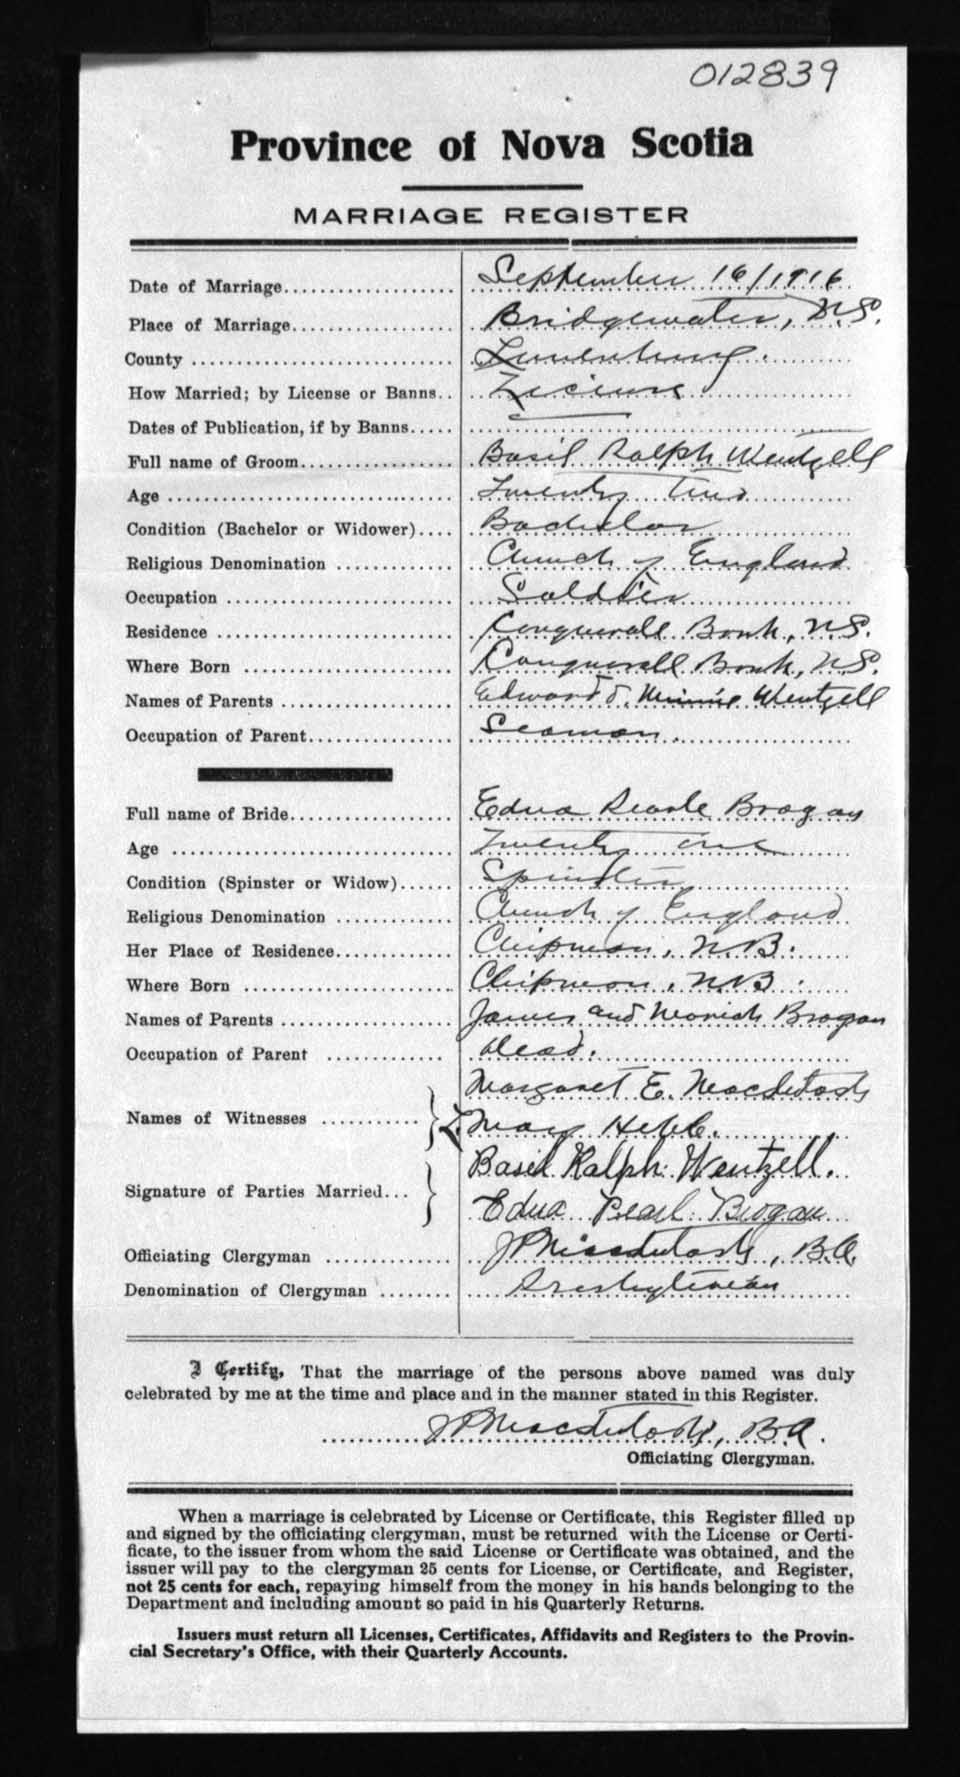 012839
Province of Nova Scotia
MARRIAGE REGISTER
Date of Marriage.................... September 16/1916
Place of Marriage................... Bridgewater, N.S.
County .............................. Lunenburg.
How Married; by License or Banns.. License
Dates of Publication, if by Banns.....
Full name of Groom.................. Basil Ralph Wentzell
Age ................................. Twenty Two
Condition (Bachelor or Widower).... Bachelor
Religious Denomination ............. Church of England
Occupation .......................... Soldier
Residence ........................... Conquerall Bank, N.S.
Where Born ........................ Conquerall Bank, N.S.
Names of Parents ................... Edward & Minnie Wentzell
Occupation of Parent................ Seaman.
Full name of Bride.................. Edna Pearle Brogan
Age ................................. Twenty one
Condition (Spinster or Widow)...... Spinster
Religious Denomination ............. Church of England
Her Place of Residence............. Chipman, N.B.
Where Born ........................ Chipman, N.B.
Names of Parents ................... James and Brogan
Occupation of Parent ............. Dead.
Margaret E. MacIntosh
Names of Witnesses ...........
Mary Hebb.
Basil Ralph Wentzell.
Signature of Parties Married...
Edna Pearl Brogan
Officiating Clergyman ............. MacIntosh, B.A.
Denomination of Clergyman ........ Presbyterian
I Certify, That the marriage of the persons above named was duly
celebrated by me at the time and place and in the manner stated in this Register.
MacIntosh, B.A.
Officiating Clergyman.
When a marriage is celebrated by License or Certificate, this Register filled up
and signed by the officiating clergyman, must be returned with the License or Certi-
ficate, to the issuer from whom the said License or Certificate was obtained, and the
issuer will pay to the clergyman 25 cents for License, or Certificate, and Register,
not 25 cents for each, repaying himself from the money in his hands belonging to the
Department and including amount so paid in his Quarterly Returns.
Issuers must return all Licenses, Certificates, Affidavits and Registers to the Provin-
cial Secretary's Office, with their Quarterly Accounts.